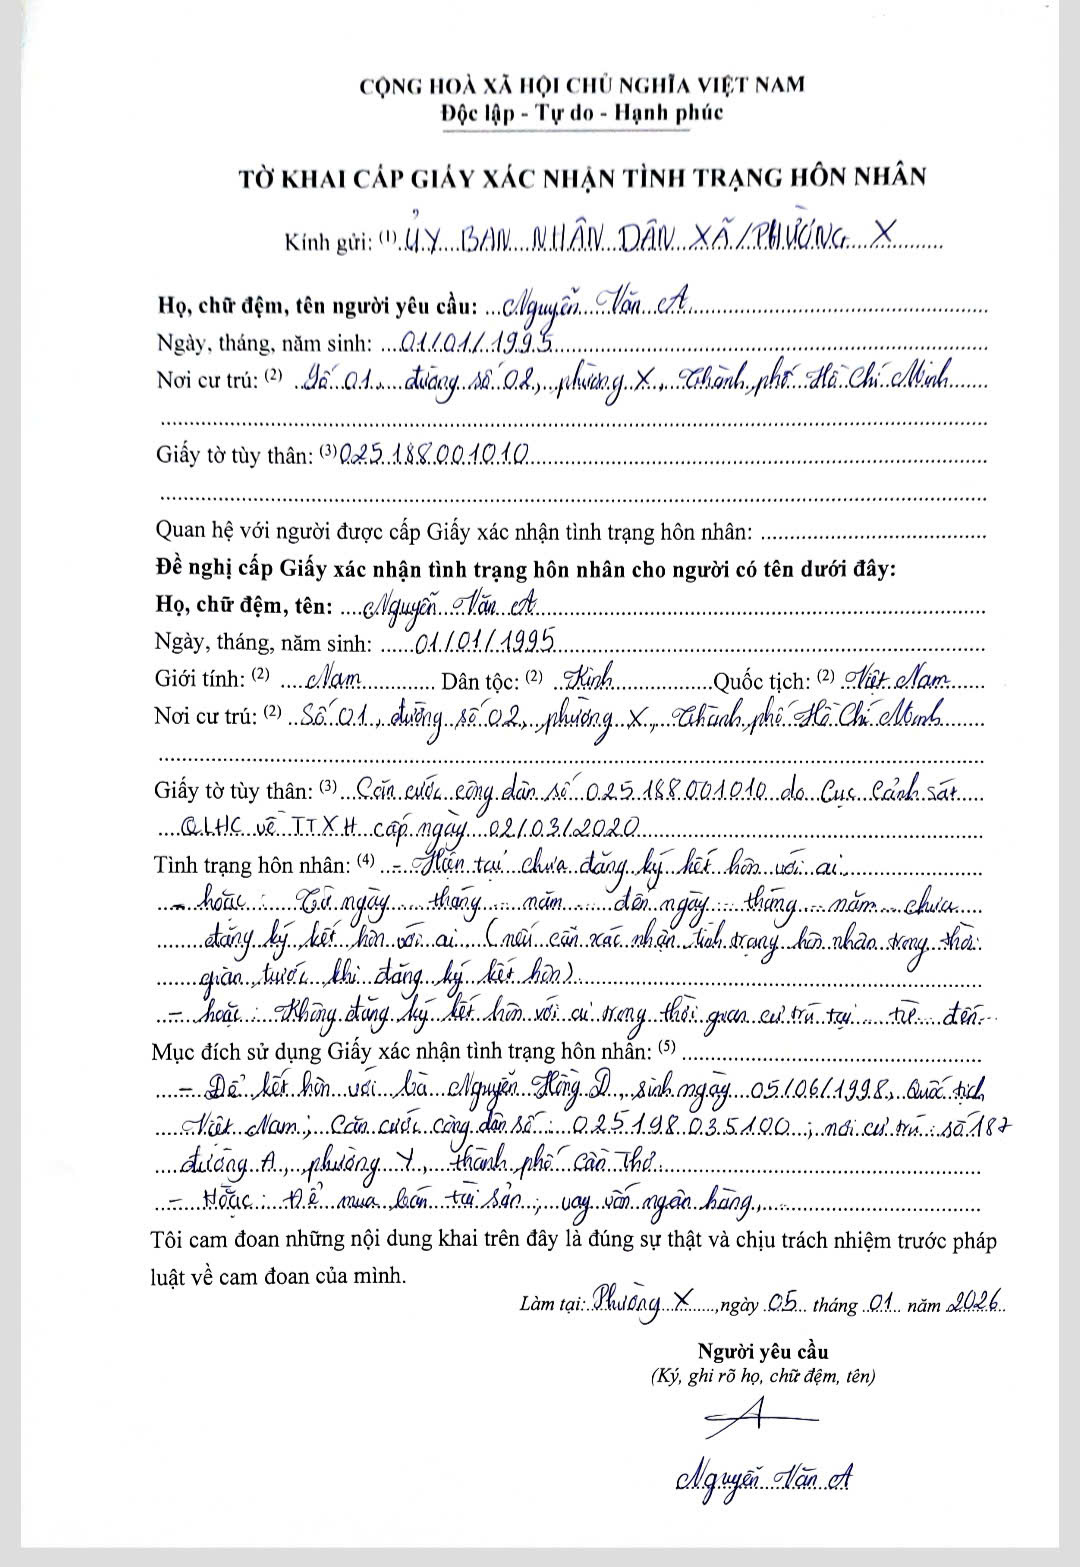 CỘNG HOÀ XÃ HỘI CHỦ NGHĨA VIỆT NAM
Độc lập - Tự do - Hạnh phúc
TỜ KHAI CẤP GIẤY XÁC NHẬN TÌNH TRẠNG HÔN NHÂN
Kính gửi: (1) ỦY BAN NHÂN DÂN XÃ/PHƯỜNG X
Họ, chữ đệm, tên người yêu cầu: Nguyễn Văn A
Ngày, tháng, năm sinh: 01/01/1995
Nơi cư trú: (2) Số 01, đường số 02, phường X, Thành phố Hồ Chí Minh
Giấy tờ tùy thân: (3) 025188001010
Quan hệ với người được cấp Giấy xác nhận tình trạng hôn nhân:
Đề nghị cấp Giấy xác nhận tình trạng hôn nhân cho người có tên dưới đây:
Họ, chữ đệm, tên: Nguyễn Văn A
Ngày, tháng, năm sinh: 01/01/1995
Giới tính: (2) Nam Dân tộc: (2) Kinh Quốc tịch: (2) Việt Nam
Nơi cư trú: (2) Số 01, đường số 02, phường X, Thành phố Hồ Chí Minh
Giấy tờ tùy thân: (3) Căn cước công dân số 025188001010 do Cục Cảnh sát
QLHC về TTXH cấp ngày 02/03/2020
Tình trạng hôn nhân: (4) - Hiện tại chưa đăng ký kết hôn với ai.
- hoặc: Từ ngày... tháng... năm... đến ngày... tháng... năm... chưa
đăng ký kết hôn với ai (nếu cần xác nhận tình trạng hôn nhân trong thời
gian trước khi đăng ký kết hôn)
- hoặc: Không đăng ký kết hôn với ai trong thời gian cư trú tại... từ... đến...
Mục đích sử dụng Giấy xác nhận tình trạng hôn nhân: (5)
- Để kết hôn với bà Nguyễn Hồng D, sinh ngày 05/06/1998, Quốc tịch
Việt Nam; Căn cước công dân số: 025198035100; nơi cư trú: số 187
đường A, phường Y, thành phố Cần Thơ
- Hoặc: Để mua bán tài sản; vay vốn ngân hàng,...
Tôi cam đoan những nội dung khai trên đây là đúng sự thật và chịu trách nhiệm trước pháp
luật về cam đoan của mình.
Làm tại: Phường X, ngày 05 tháng 01 năm 2026
Người yêu cầu
(Ký, ghi rõ họ, chữ đệm, tên)
A
Nguyễn Văn A